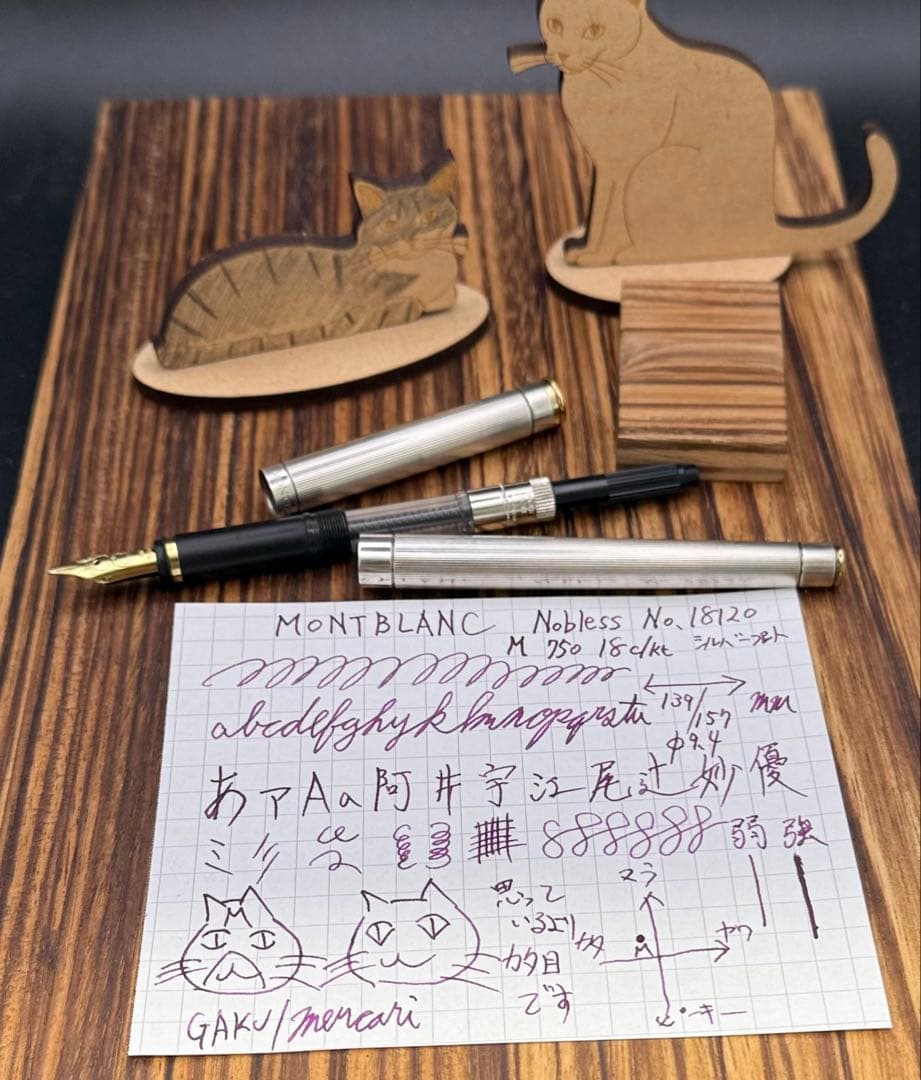 MONTBLANC Nobless No.18120
M 750 18c/kt シルバー
139/157 mm
φ9.4
abcdefghyklmnopqrstu
あァAa阿井宇江尾辻妙優
弱 強
マラ
カタ M ヤワ
ピーキー
思って
いるより
カタ目
です
GAKU/mercari